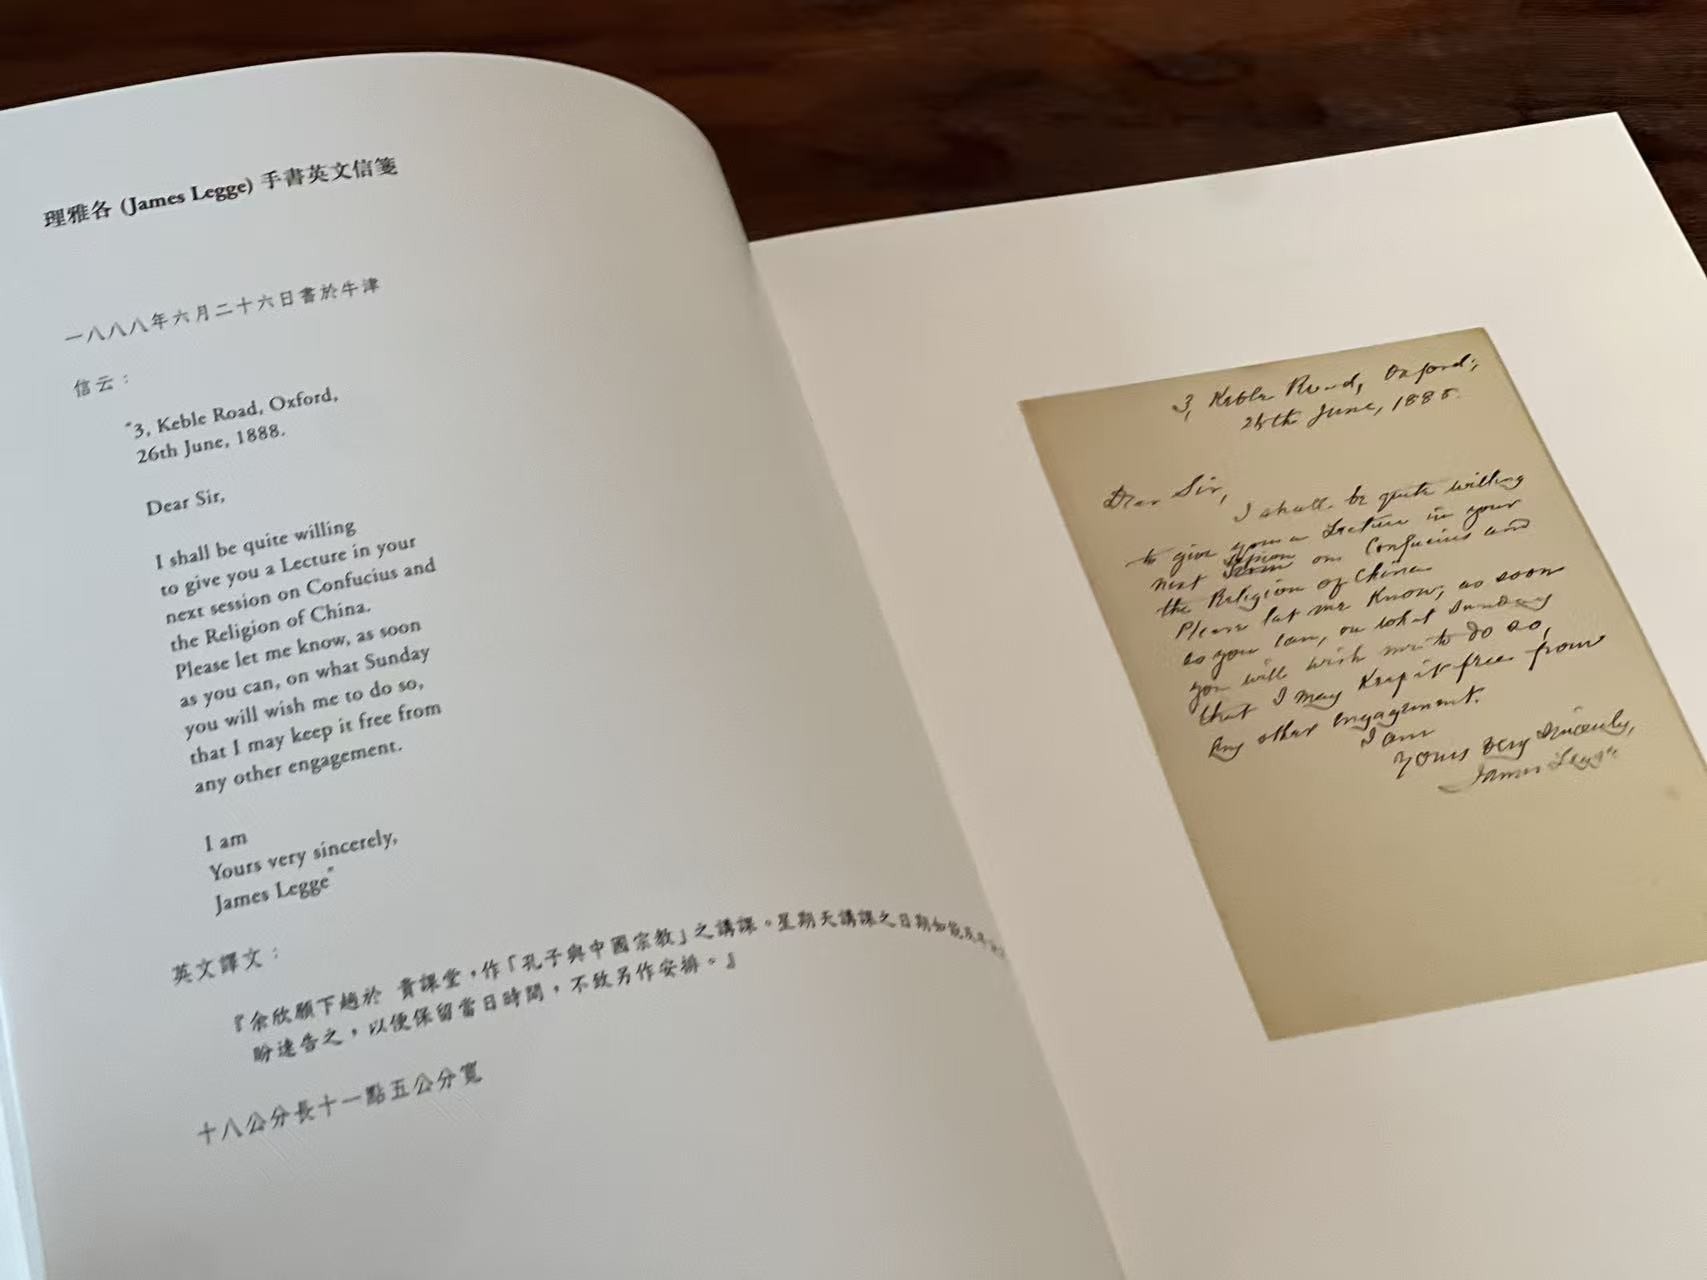 理雅各 (James Legge) 手書英文信箋
一八八八年六月二十六日書於牛津
信云：
"3, Keble Road, Oxford,
26th June, 1888.
Dear Sir,
I shall be quite willing
to give you a Lecture in your
next session on Confucius and
the Religion of China.
Please let me know, as soon
as you can, on what Sunday
you will wish me to do so,
that I may keep it free from
any other engagement.
I am
Yours very sincerely,
James Legge"
英文譯文：
『余欣願下趟於 貴課堂，作「孔子與中國宗教」之講課。星期天講課之日期如能
盼速告之，以便保留當日時間，不致另作安排。』
十八公分長十一點五公分寬
3, Keble Road, Oxford,
26th June, 1888.
Dear Sir,
I shall be quite willing
to give you a Lecture in your
next session on Confucius and
the Religion of China.
Please let me know, as soon
as you can, on what Sunday
you will wish me to do so,
that I may keep it free from
any other engagement.
I am
Yours very sincerely,
James Legge